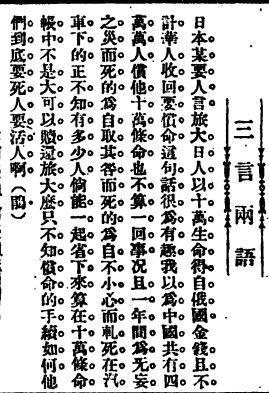 三言兩語
日本某要人言旅大日人以十萬生命得自俄國金錢且不
計華人收回要償命這句話很爲有趣我以爲中國共有四
萬萬人償他十萬條命也不算一回事況且一年間爲无妄
之災而死的爲自取其咎而死的爲自不小心而軋死在汽
車下的正不知有多少人倘能一起省下來算在十萬條命
帳中不是大可以贖還旅大麽只不知償命的手續如何他
們到底要死人要活人啊（鵑）